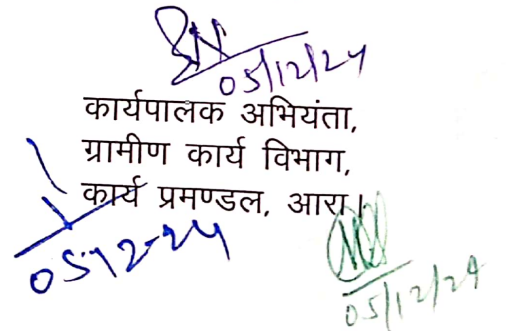 05/12/24
कार्यपालक अभियंता,
ग्रामीण कार्य विभाग,
कार्य प्रमण्डल, आरा।
05.12.24
05/12/24